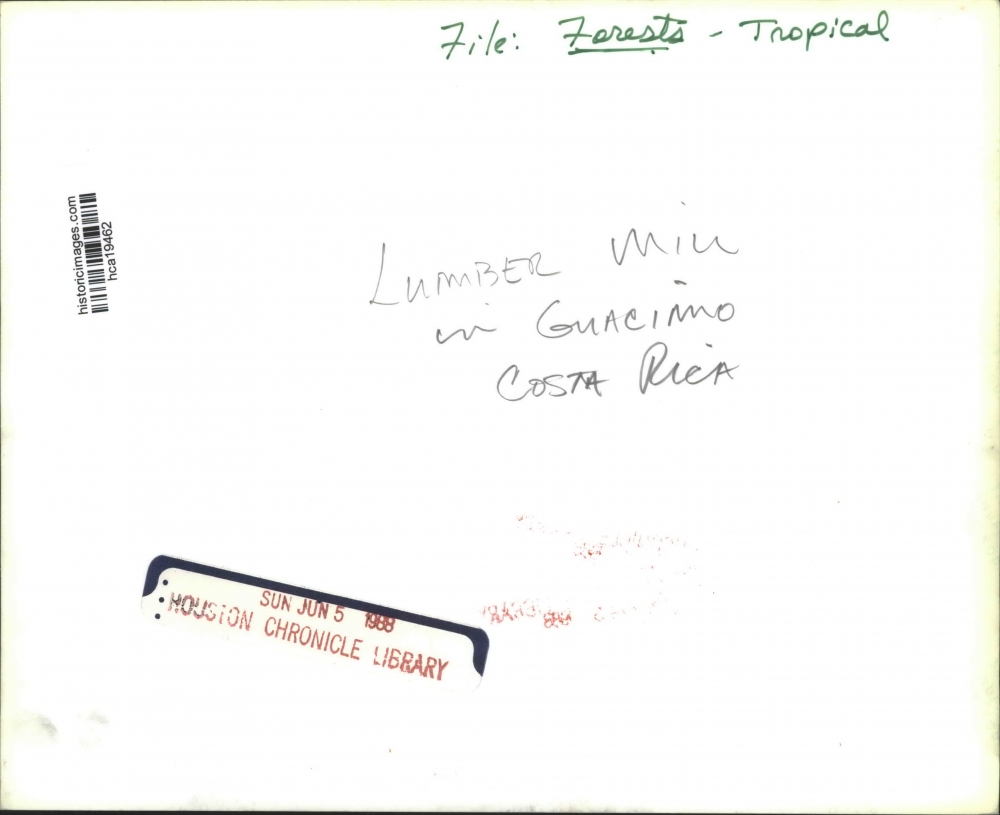 File: Forests - Tropical
historicimages.com
hca19462
LUMBER MILL
in GUACIMO
COSTA RICA
SUN JUN 5 1988
HOUSTON CHRONICLE LIBRARY